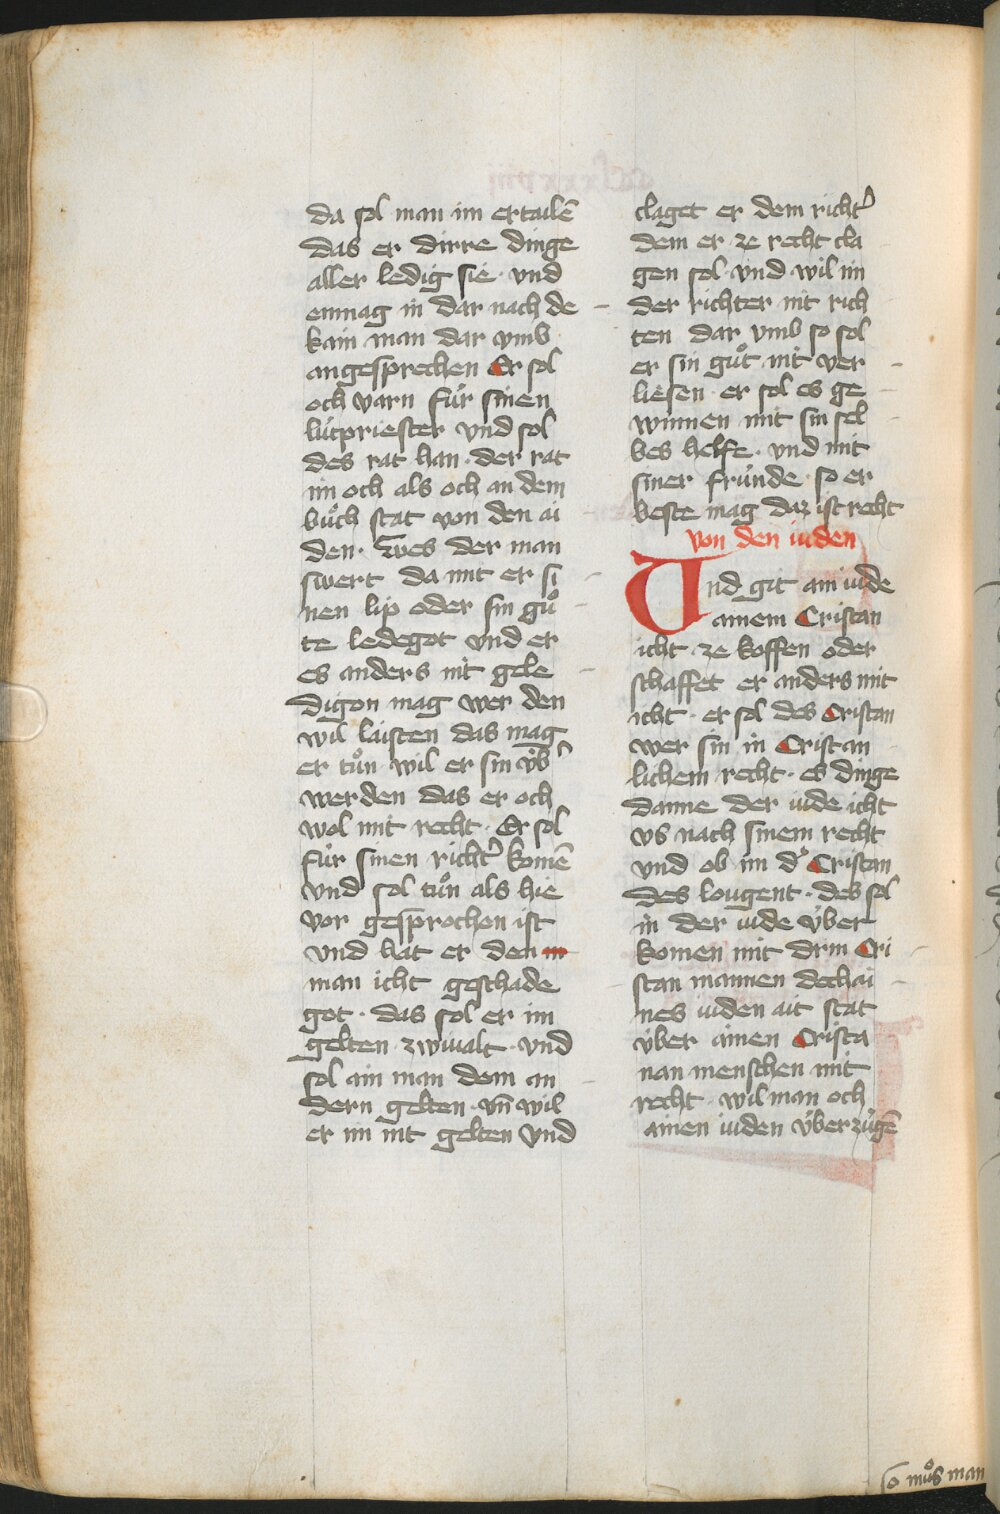 da sol man im ertailē
das er dirre dinge
aller ledig sie · vnd
enmag in dar nach de
kain man dar vmb
angesprechen Er sol
och varn für sinen
lútpriester vnd sol
des rat han · der rat
im och als och an dem
bůch stat von den ai
den · Wes der man
swert da mit er si
nen lip oder sin gů
te ledegot vnd er
es anders nit gele
digon mag wer den
wil laisten das mag
er tůn wil er sin v́b͛
werden das er och
wol mit recht · Er sol
fúr sinen richt͛ komē
vnd sol tůn als hie
vor gesprochen ist
vnd hat er den
man icht geschade
got · das sol er im
gelten zwiualt · vnd
sol ain man dem an
dern gelten · vn̄ wil
er im nit gelten vnd
claget er dem richt͛
dem er ze recht cla
gen sol · vnd wil im
der richter nit rich
ten dar vmb so sol
er sin gůt nit ver
liesen · er sol es ge
winnen mit sin sel
bes helfe · vnd mit
siner frúnde · so er
beste mag daz ist recht
von den iuden
Vnd git ain iude
ainem Cristan
icht · ze koffen oder
schaffet er anders mit
icht · er sol des Cristan
wer sin in Cristan
lichem recht · es dinge
danne der iude icht
vs nach sinem recht
vnd ob im d͛ Cristan
des lougent · des sol
in der iude v́ber
komen mit drin Cri
stan mannen dechai
nes iuden ait stat
v́ber ainen Crista
nan menschen mit
recht · wil man och
ainen iuden v́berzúgē
so můs man